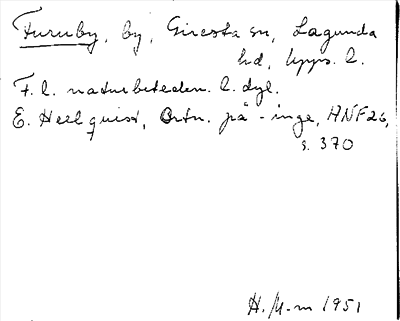 Furuby, by, Giresta sn, Lagunda
hd, Upps. l.
F. l. naturbeteckn. l. dyl.
E. Hellquist, Ortn. på -inge, HNF 26,
s. 370
H. M-m 1951